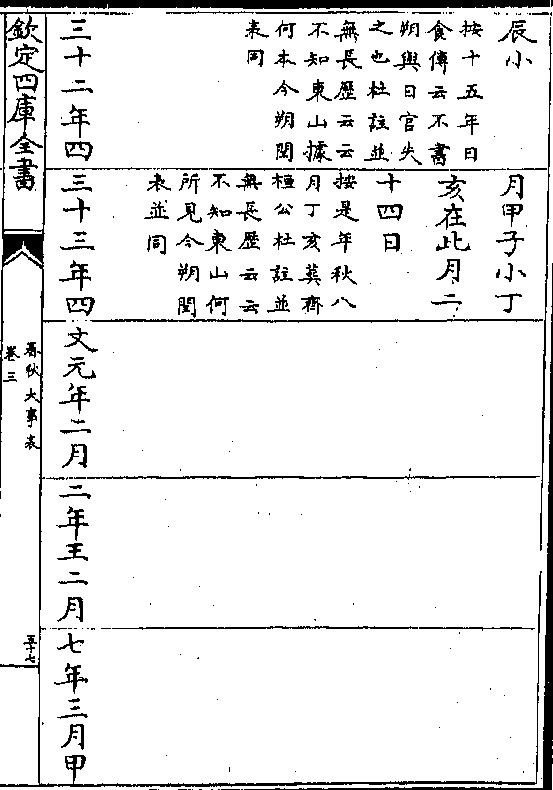 辰小
按十五年日
食傳云不書
朔與日官失
之也杜註並
無長歷云云
不知東山據
何本今朔閏
表同
三十二年四
月甲子小丁
亥在此月二
十四日
按是年秋八
月丁亥葬齊
桓公杜註並
無長歷云云
不知東山何
所見今朔閏
表並同
三十三年四
文元年二月
二年王二月
七年三月甲
欽定四庫全書
春秋大事表
卷三
五十七